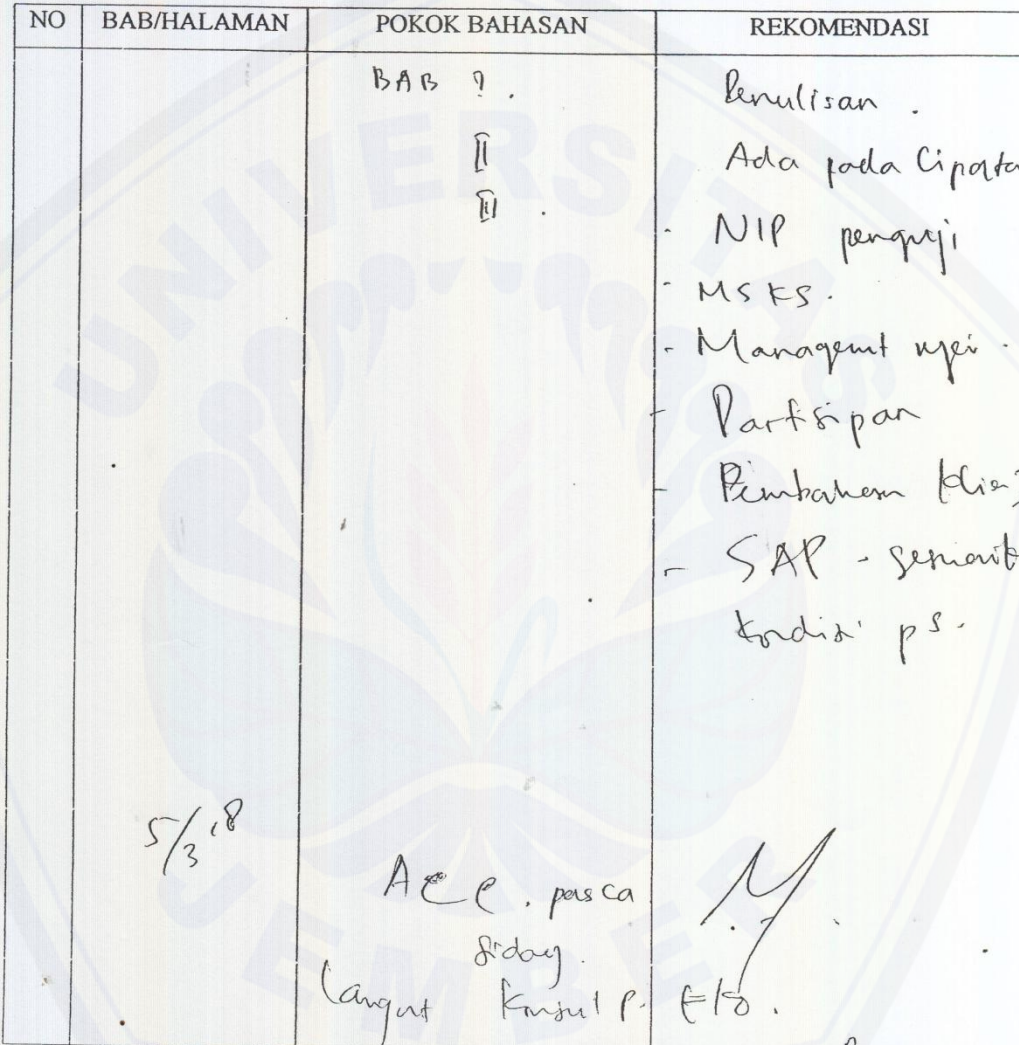 NO BAB/HALAMAN POKOK BAHASAN REKOMENDASI
BAB Penulisan.
II Ada pada
III - NIP penguji
- MSKS.
- Managemt nyeri.
- Partisipan
- Pembahasan
- SAP - sesuaik
kondisi ps.
5/3 '18
Acc. pasca
sidang.
Langut konsul p.
UNIVERSITAS
JEMBER